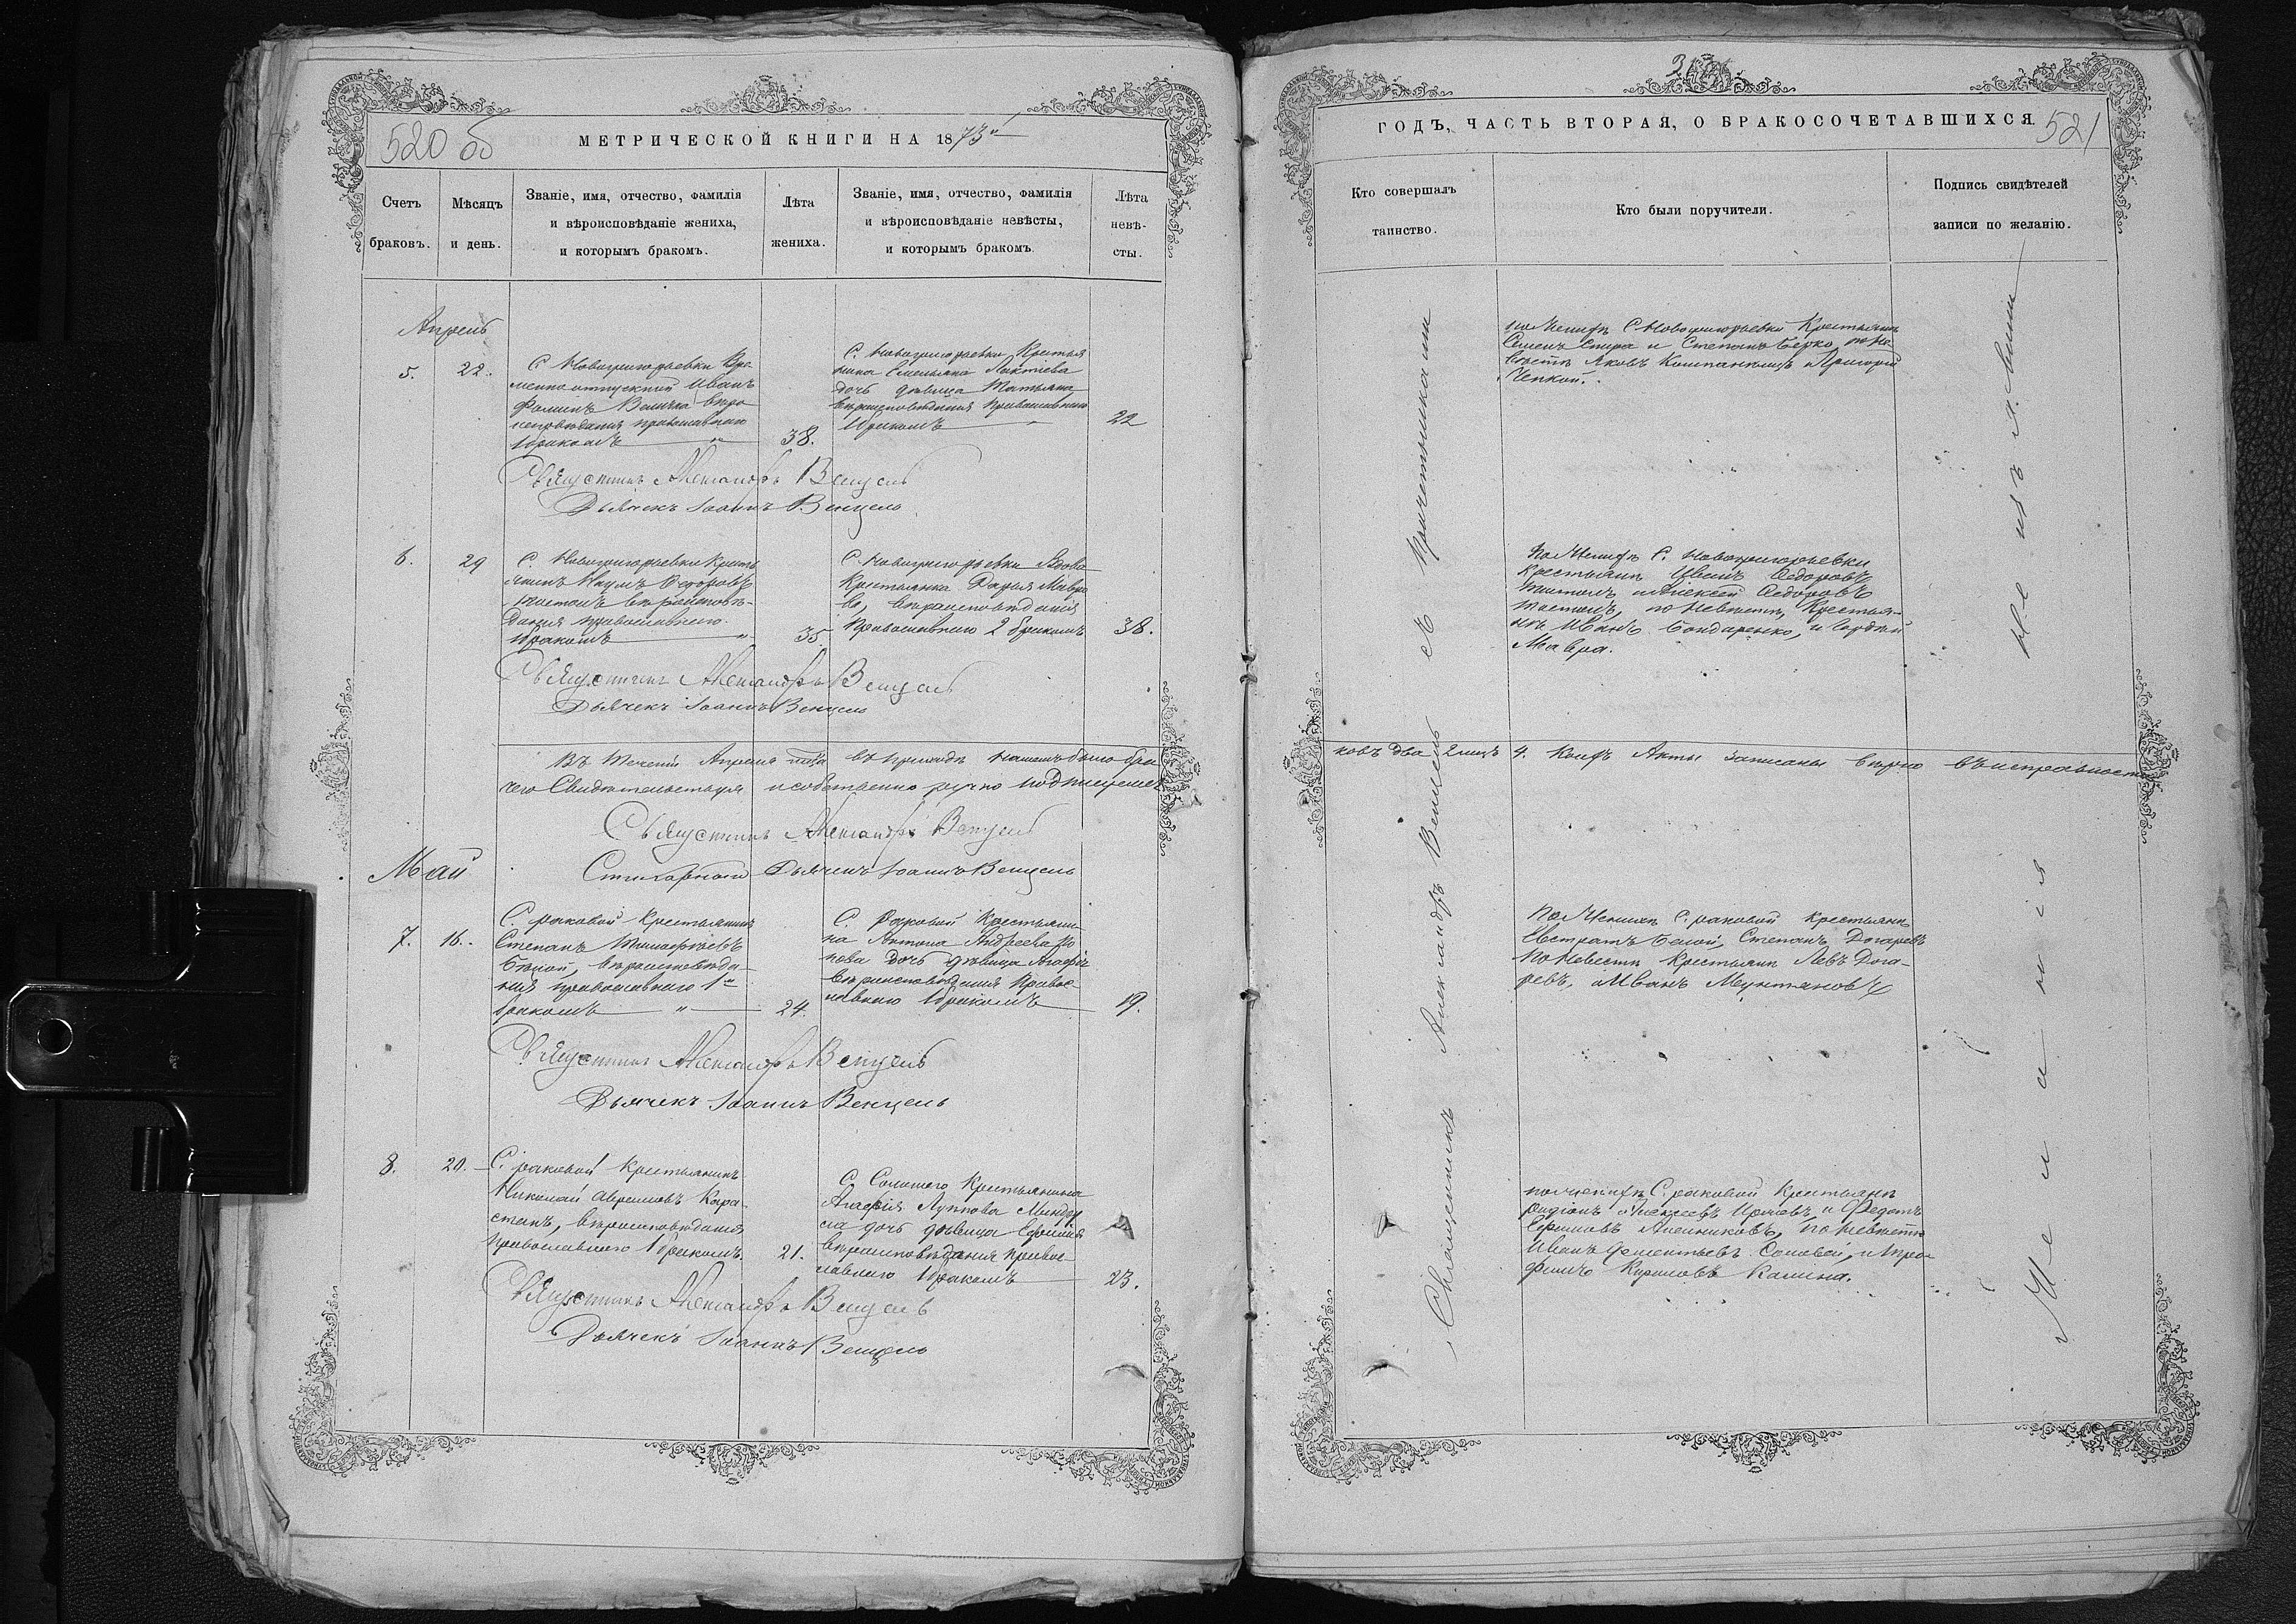 520 об
МЕТРИЧЕСКОЙ КНИГИ НА 1873й
Счетъ
браковъ.
Мѣсяцъ
и день.
Званіе, имя, отчество, фамилія
и вѣроисповѣданіе жениха,
и которымъ бракомъ.
Лѣта
жениха.
Званіе, имя, отчество, фамилія
и вѣроисповѣданіе невѣсты,
и которымъ бракомъ.
Лѣта
невѣ-
сты.
Апрель
5.
22.
С. Новогригорьевки Вре
менно отпускний Иванъ
Фоминъ Величка вѣро
исповѣданія православнаго
1 бракомъ
38.
С. Новогригорьевки Крестья
нина Емельяна Лактіева
дочь дѣвица Татьяна
вѣроисповѣданія православнаго
1 бракомъ
22
Священникъ Александръ Венцель
Дьячекъ Іоаннъ Венцель
6.
29
С. Новогригорьевки Кресть
янинъ Наумъ Федоровъ
вѣроисповѣ-
данія православнаго
1 бракомъ
35.
С. Новогригорьевки Вдова
Крестьянка Дарья Мавра
вѣроисповѣданія
Православнаго 2 бракомъ
38.
Священникъ Александръ Венцель
Дьячекъ Іоаннъ Венцель
Въ теченіи Апреля м-ца въ приходѣ нашемъ было бра
чего Свидѣтельствуя и собственно ручно подписуемся
Священникъ Александръ Венцель
Стихарный Дьячекъ Іоаннъ Венцель
Май
7.
16.
С. раковой Крестьянинъ
Степанъ Тимофѣевъ
Бѣлой, вѣроисповѣда-
нія православнаго 1м
бракомъ
24.
С. Раковой Крестьяни-
на Антона Андреева
дочь дѣвица Агафія
вѣроисповѣданія Правос-
лавнаго 1 бракомъ
19.
Священникъ Александръ Венцель
Дьячекъ Іоаннъ Венцель
8.
20.
С. раковой Крестьянинъ
Николай Авремовъ Кара-
станъ, вѣроисповѣданія
Православнаго 1 бракомъ.
21.
С. Солоного Крестьянина
Луппова
дочь дѣвица
вѣроисповѣданія правос-
лавнаго 1 бракомъ
23.
Священникъ Александръ Венцель
Дьячекъ Іоаннъ Венцель
521
ГОДЪ, ЧАСТЬ ВТОРАЯ, О БРАКОСОЧЕТАВШИХСЯ.
Кто совершалъ
таинство.
Кто были поручители.
Подпись свидѣтелей
записи по желанію.
Священникъ Александръ Венцель съ причетниками
по Женихѣ С. Новогригорьевки Крестьяне
Семенъ Спира и Степанъ Берко, по Не
вѣстѣ Яковъ Компаніецъ и Григорій
Чепкой.
По Женихѣ С. Новогригорьевки
Крестьяне Иванъ Федоровъ
и Алексей Федоровъ
по Невѣстѣ, Крестья-
не Иванъ Бондаренко, и
Мавра.
ковъ два 2 лицъ 4. Коихъ Акты записаны вѣрно въ исправности
По Женихѣ С. раковой крестьяне
Евстратъ Белой, Степанъ Догаревъ
По Невѣстѣ Крестьяне Левъ Дога-
ревъ, Иванъ Мунтяновъ
по женихѣ С. раковой Крестьяне
Родіонъ Алексеевъ и Федотъ
по невѣстѣ
Иванъ Дементьевъ Соловой, и Тро-
фимъ Кириловъ Калина.